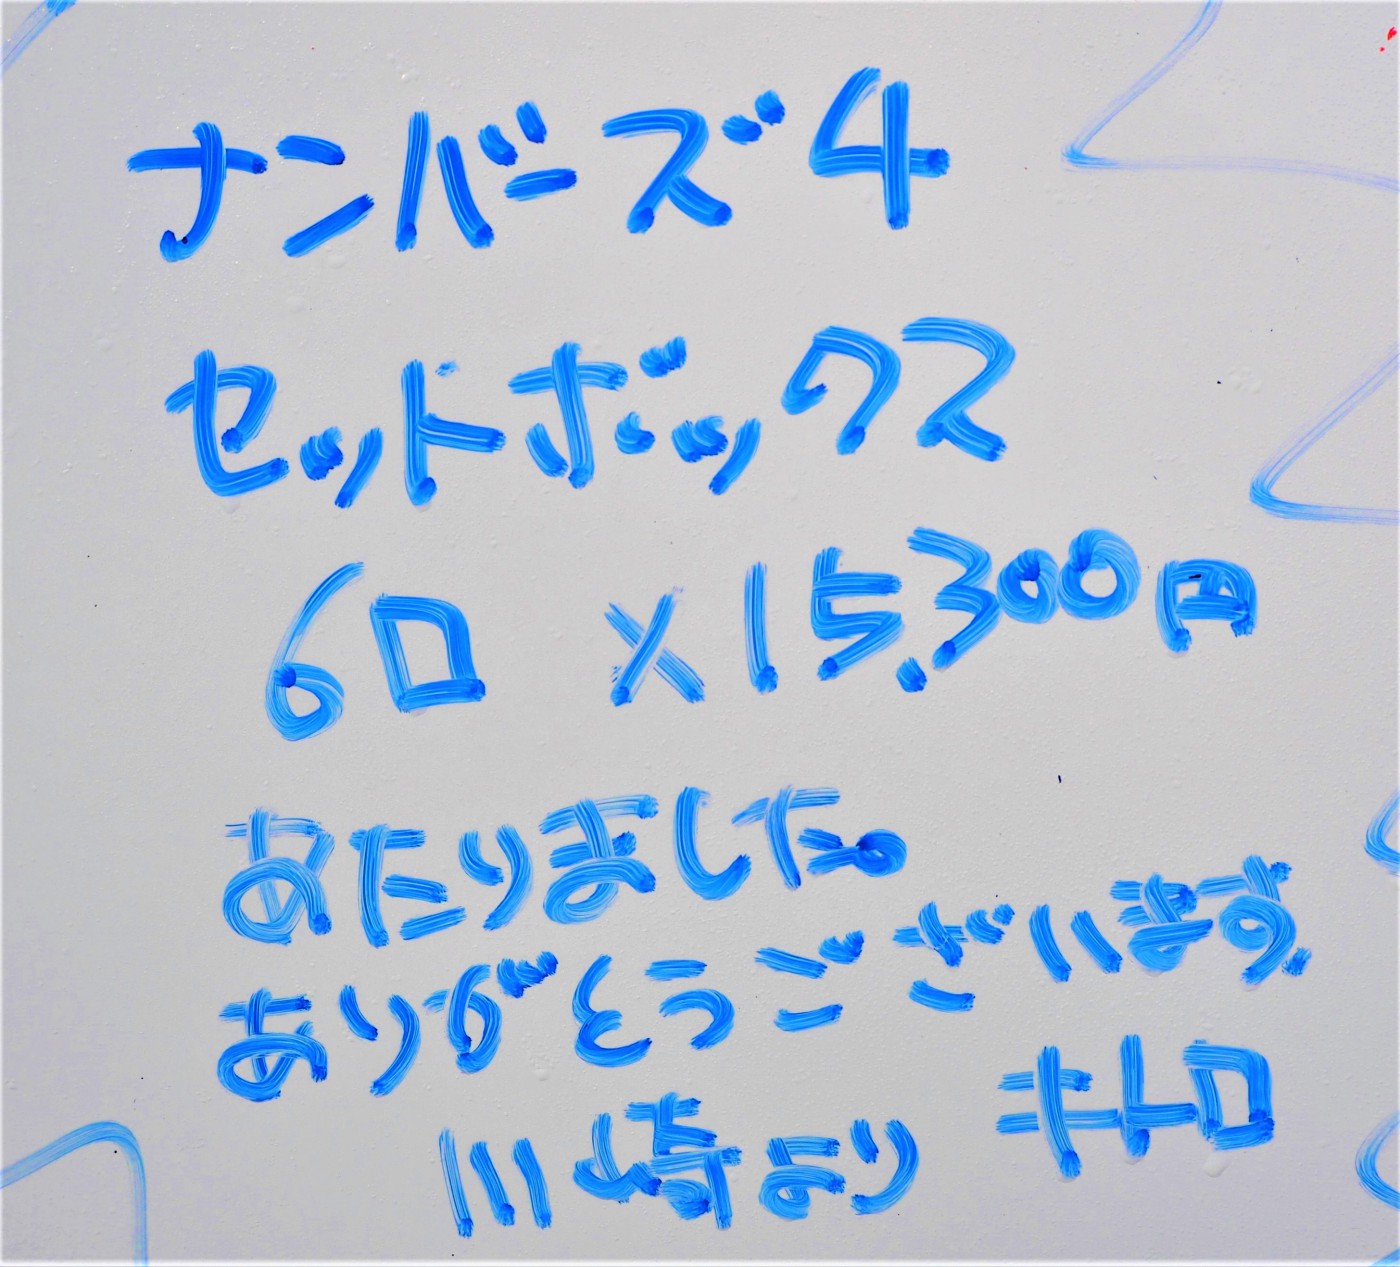 ナンバーズ4
セットボックス
6口 ×15,300円
あたりました。
ありがとうございます。
川崎より キトロ